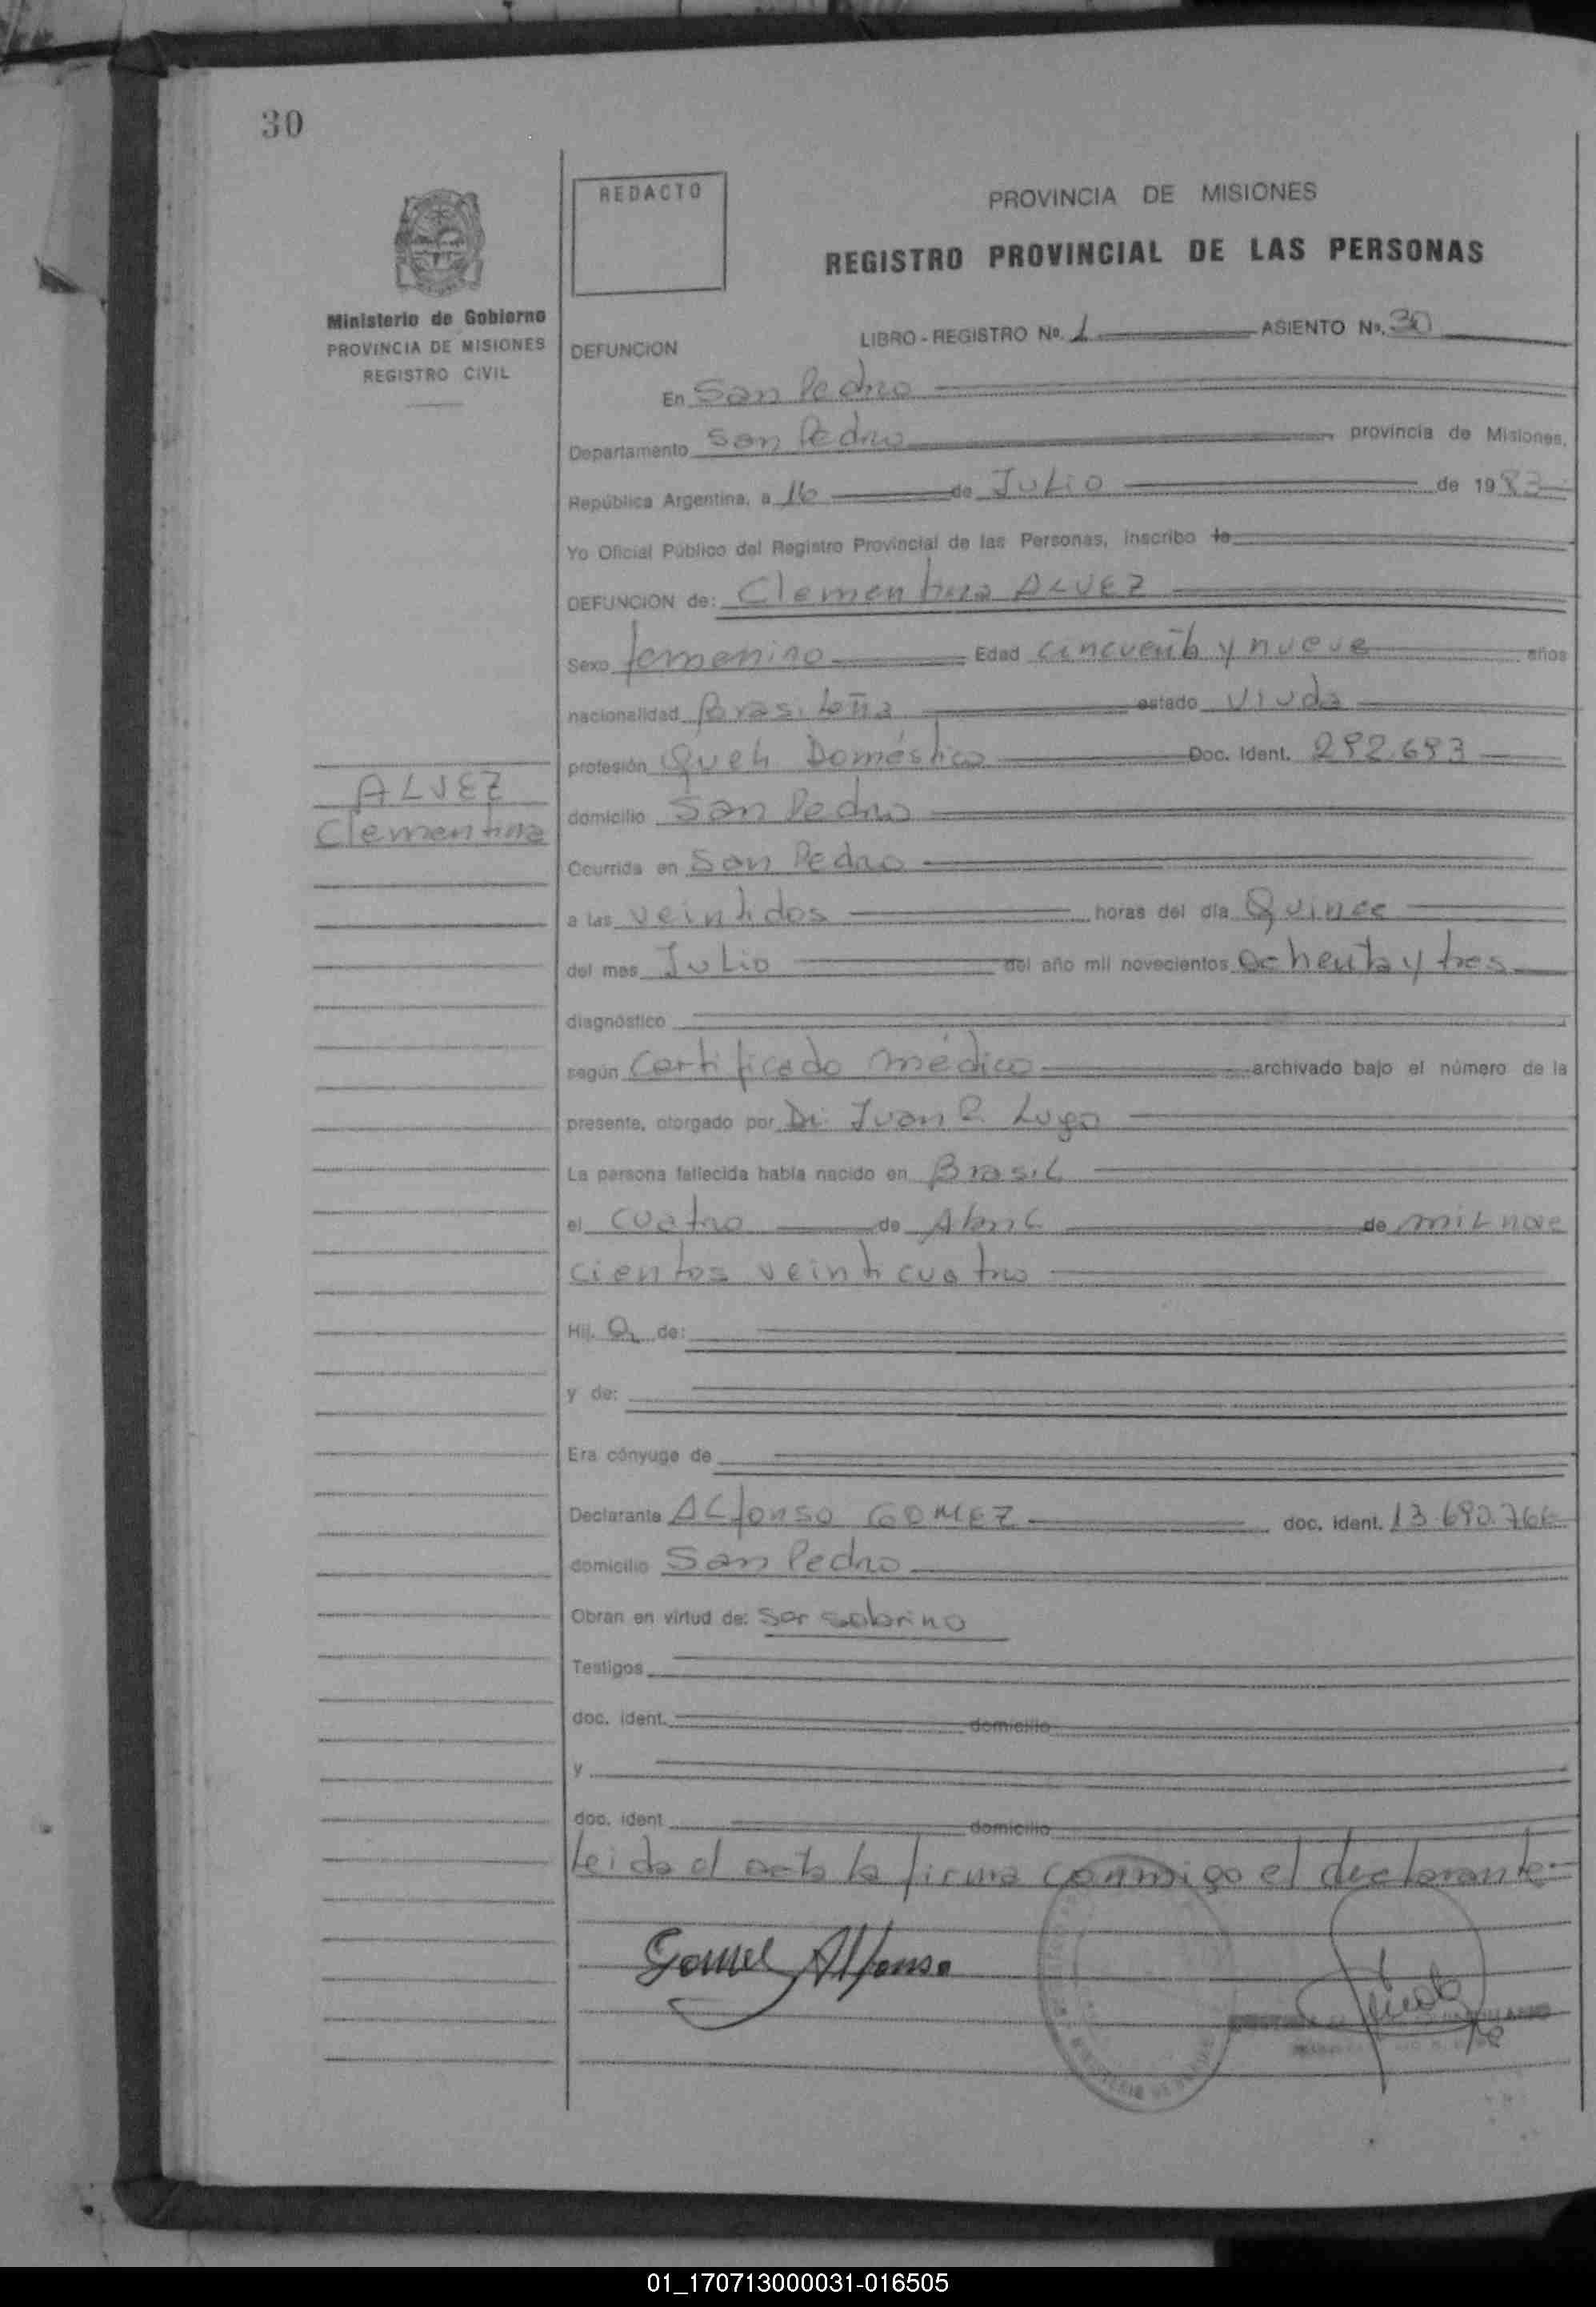 30
REDACTO
PROVINCIA DE MISIONES
REGISTRO PROVINCIAL DE LAS PERSONAS
Ministerio de Gobierno
PROVINCIA DE MISIONES
REGISTRO CIVIL
LIBRO - REGISTRO Nº. 1 ASIENTO Nº. 30
DEFUNCION
En San Pedro
Departamento San Pedro provincia de Misiones,
República Argentina, a 16 de Julio de 1983
Yo Oficial Público del Registro Provincial de las Personas, inscribo la
DEFUNCION de: Clementina ALVEZ
Sexo femenino Edad cincuenta y nueve años
nacionalidad Brasileña estado Viuda
profesión Queh Doméstico Doc. Ident. 292.693
ALVEZ
Clementina
domicilio San Pedro
Ocurrida en San Pedro
a las veintidos horas del día Quince
del mes Julio del año mil novecientos ochenta y tres
diagnóstico
según Certificado médico archivado bajo el número de la
presente, otorgado por Dr. Juan R. Lugo
La persona fallecida había nacido en Brasil
el cuatro de Abril de mil nove
cientos veinticuatro
Hij. a de:
y de:
Era cónyuge de
Declarante ALfonso GOMEZ doc. ident. 13.690.766
domicilio San Pedro
Obran en virtud de: Ser sobrino
Testigos
doc. ident. domicilio
y
doc. ident domicilio
Leida el acta la firma conmigo el declarante
Gomez Alfonso
01_170713000031-016505